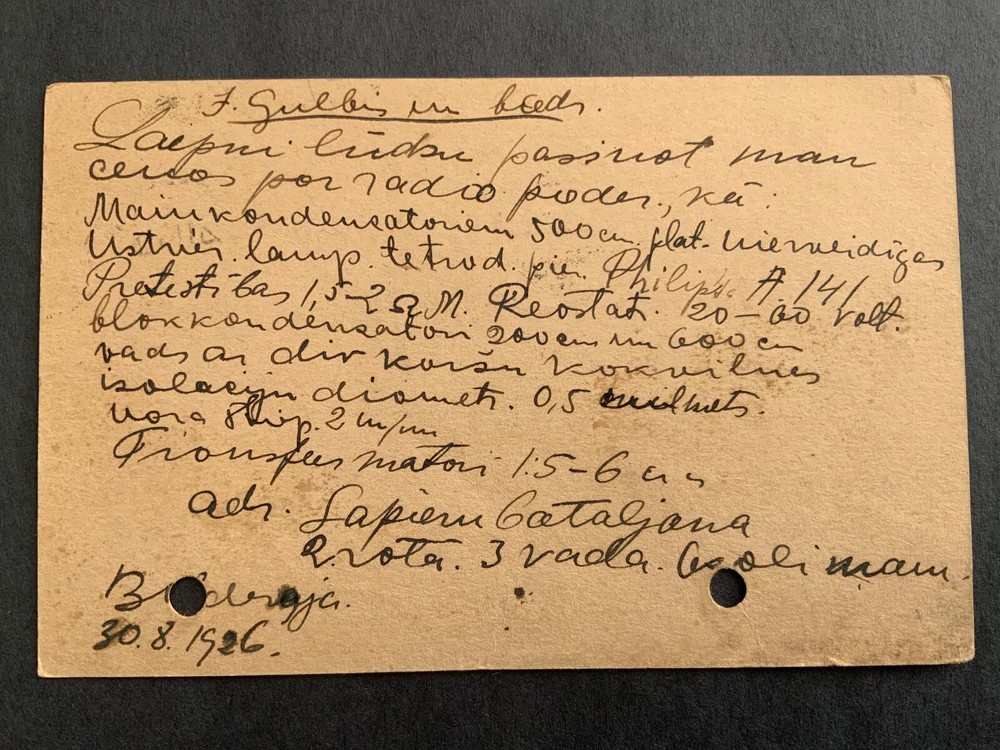 J. Gulbis un bieds.
Laipni lūdzu pasinot man
cenas par radio peeder., kā:
Mainkondensatoriem 500 cm. plat. nierveidīgas
Ustvēr. lamp. tetrod. pie. Philips. A 141
Pretestības 1,5-2 Ω M. Reostat. 20-60 volt.
blokkondensatori 200 cm un 600 cm
vads ar div kāršu kokvilnas
izolaciju diametr. 0,5 milmets.
vara 2 m/m
Transformatori 1:5-6
adr. Sapieru bataljona
2. rota. 3 vada. man.
30.8.1926.